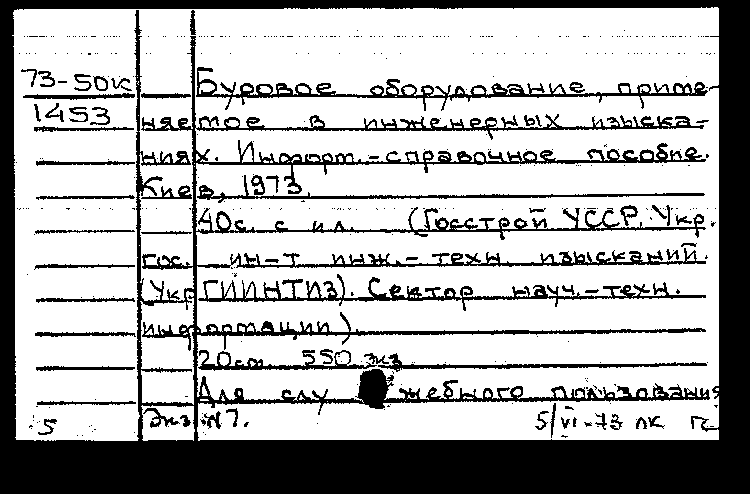 73-50к Буровое оборудование, приме-
1453 няемое в инженерных изыска-
ниях. Информ.-справочное пособие.
Киев, 1973.
40с. с ил. (Госстрой УССР. Укр.
гос. ин-т инж.-техн. изысканий.
(УкрГИИНТИЗ). Сектор науч.-техн.
информации).
20см 550 экз
Для служебного пользования
5 Экз. №7. 5/VI-73 лк